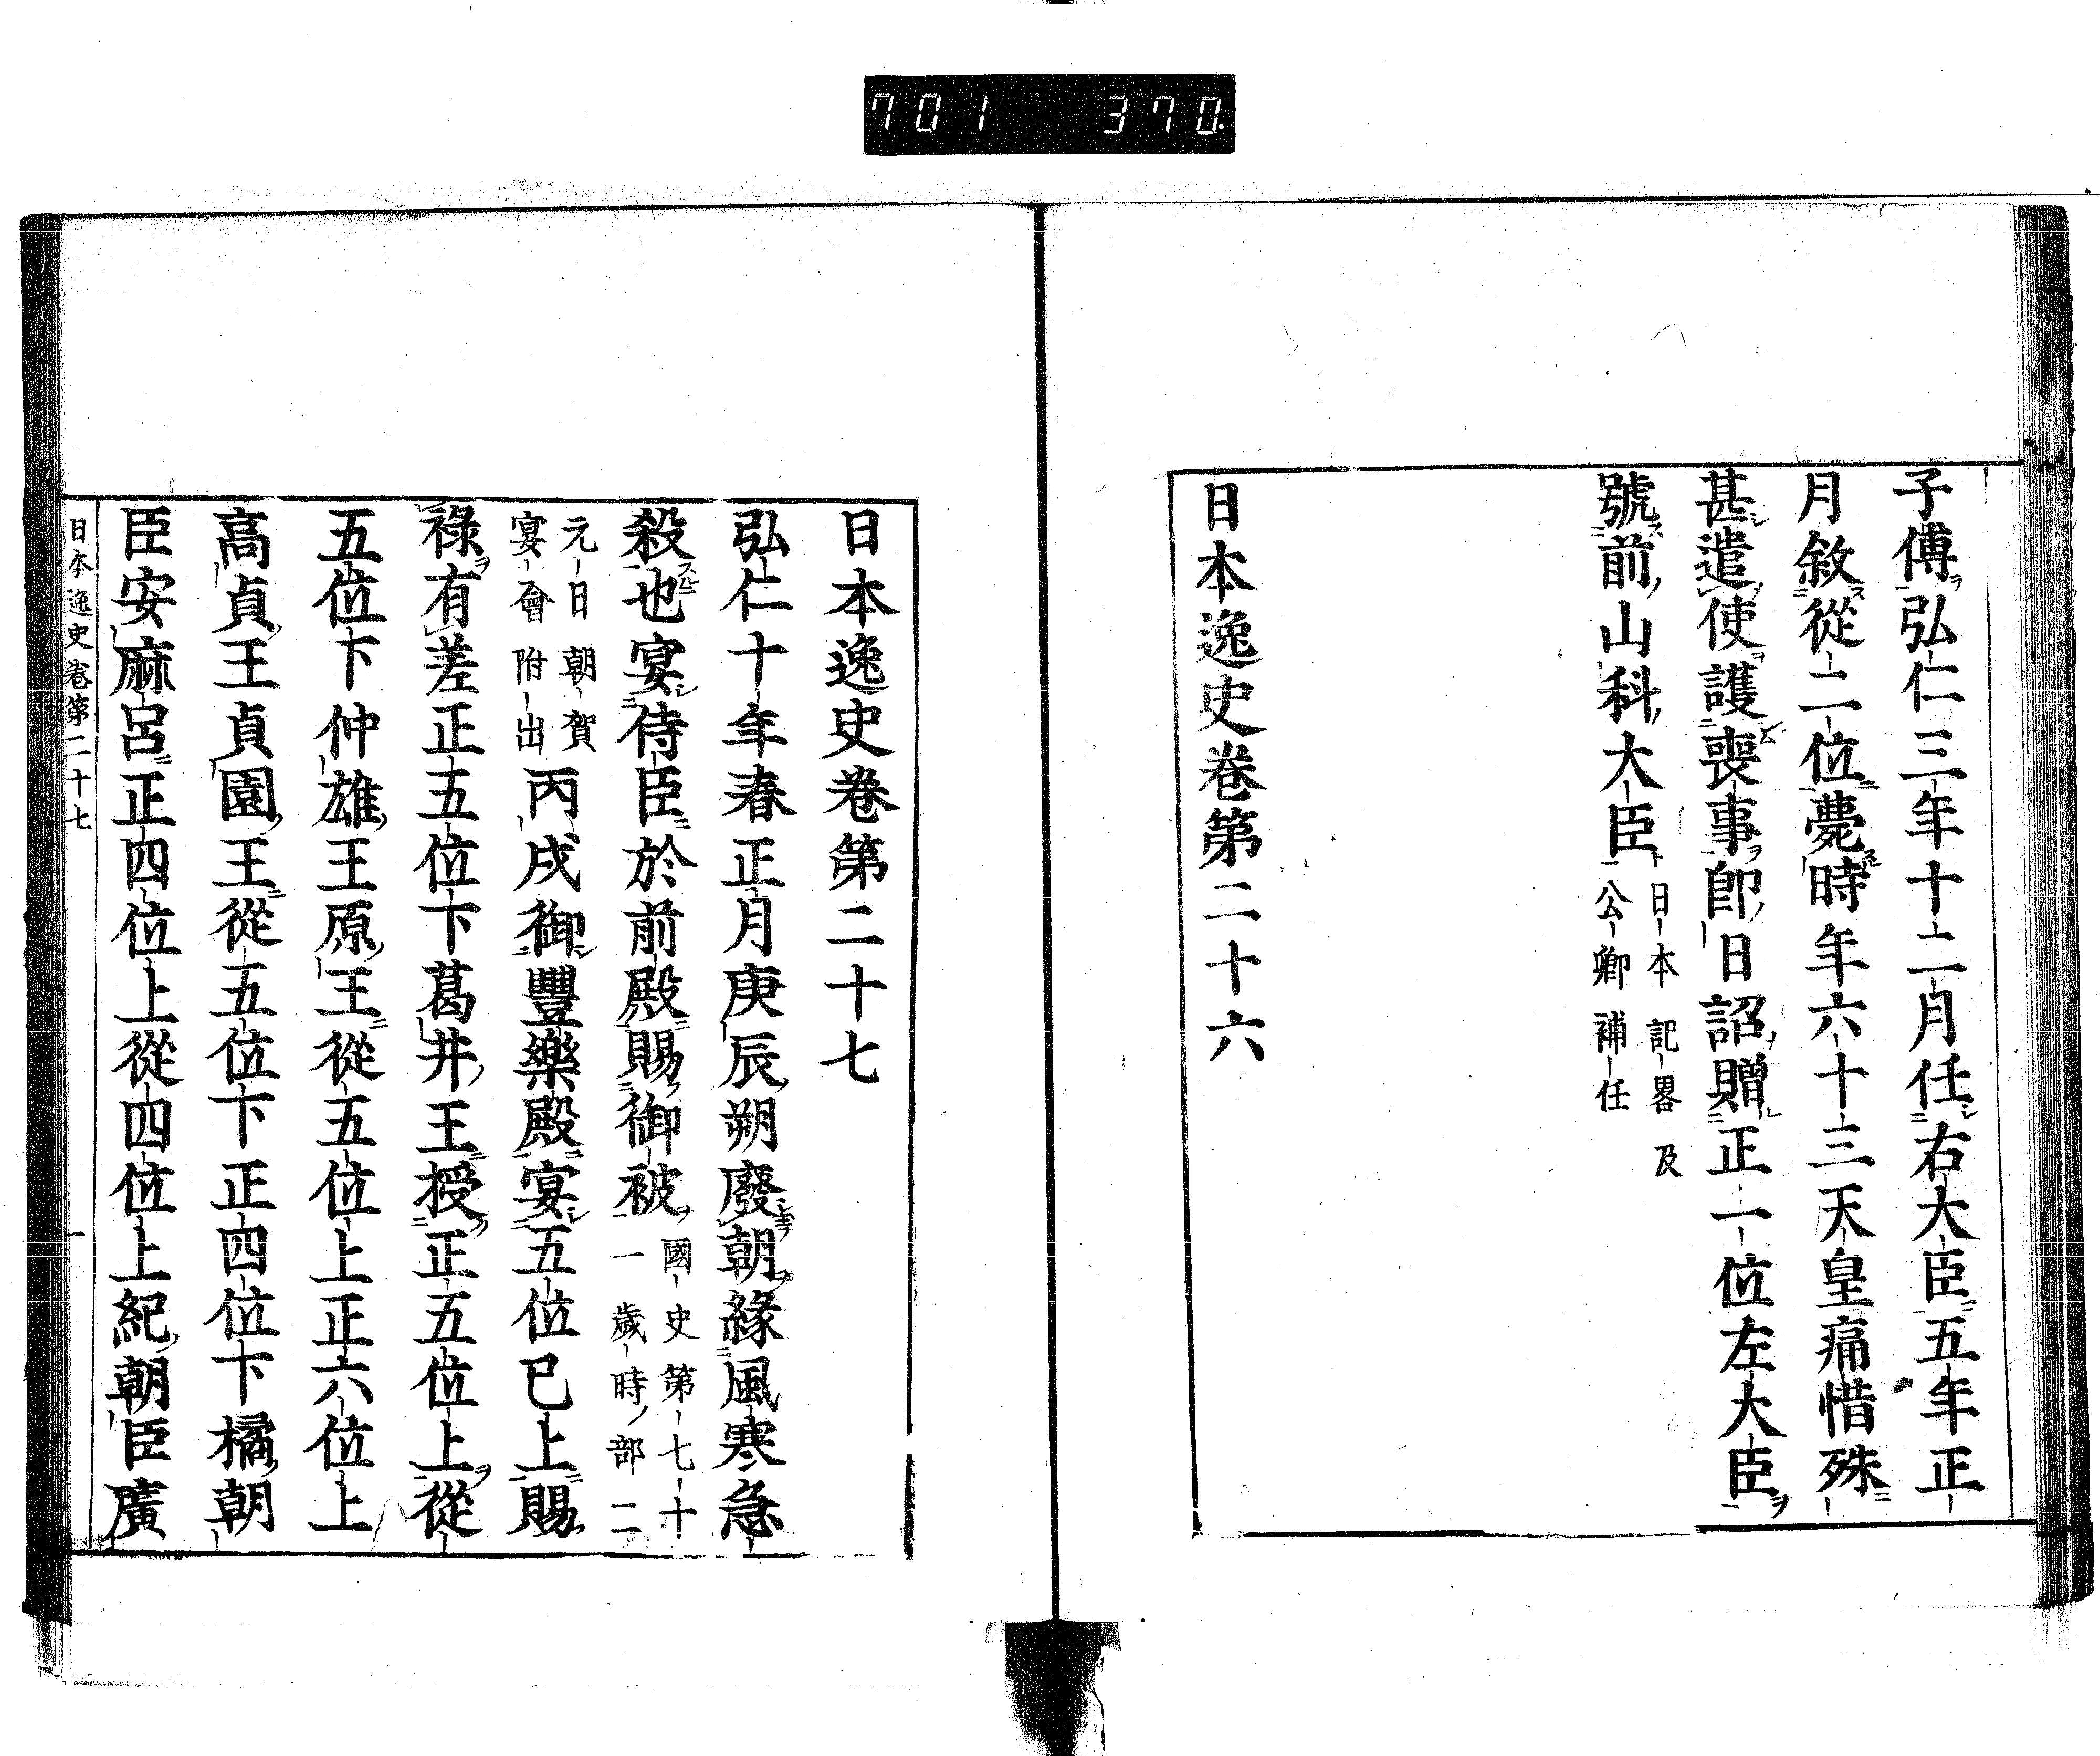 701 370
子傅弘仁三年十二月任右大臣五年正
月敘從二位薨時年六十三天皇痛惜殊
甚遣使護喪事即日詔贈正一位左大臣
號前山科大臣日本記畧及
公卿補任
日本逸史卷第二十六
日本逸史卷第二十七
弘仁十年春正月庚辰朔廢朝緣風寒急
殺也宴侍臣於前殿賜御被國史第七十
一歲時部二
元日朝賀
宴會附出
丙戌御豐樂殿宴五位已上賜
祿有差正五位下葛井王授正五位上從
五位下仲雄王原王從五位上正六位上
高貞王貞園王從五位下正四位下橘朝
臣安麻呂正四位上從四位上紀朝臣廣
日本逸史卷第二十七
一